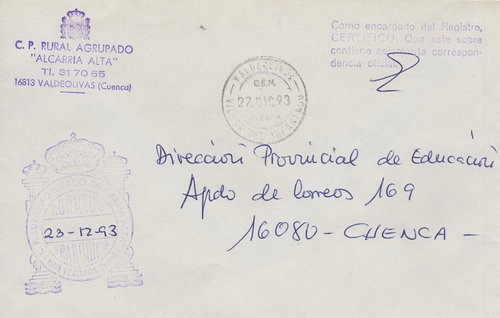 C. P. RURAL AGRUPADO
"ALCARRIA ALTA"
Tl. 31 70 65
16813 VALDEOLIVAS (Cuenca)
Como encargado del Registro,
CERTIFICO: Que este sobre
contiene solamente correspon-
dencia oficial.
VALDEOLIVAS
27 DIC 93
Dirección Provincial de Educación
Apdo de Correos 169
16080 - CUENCA -
CORREOS
23-12-93
FRANQUICIA